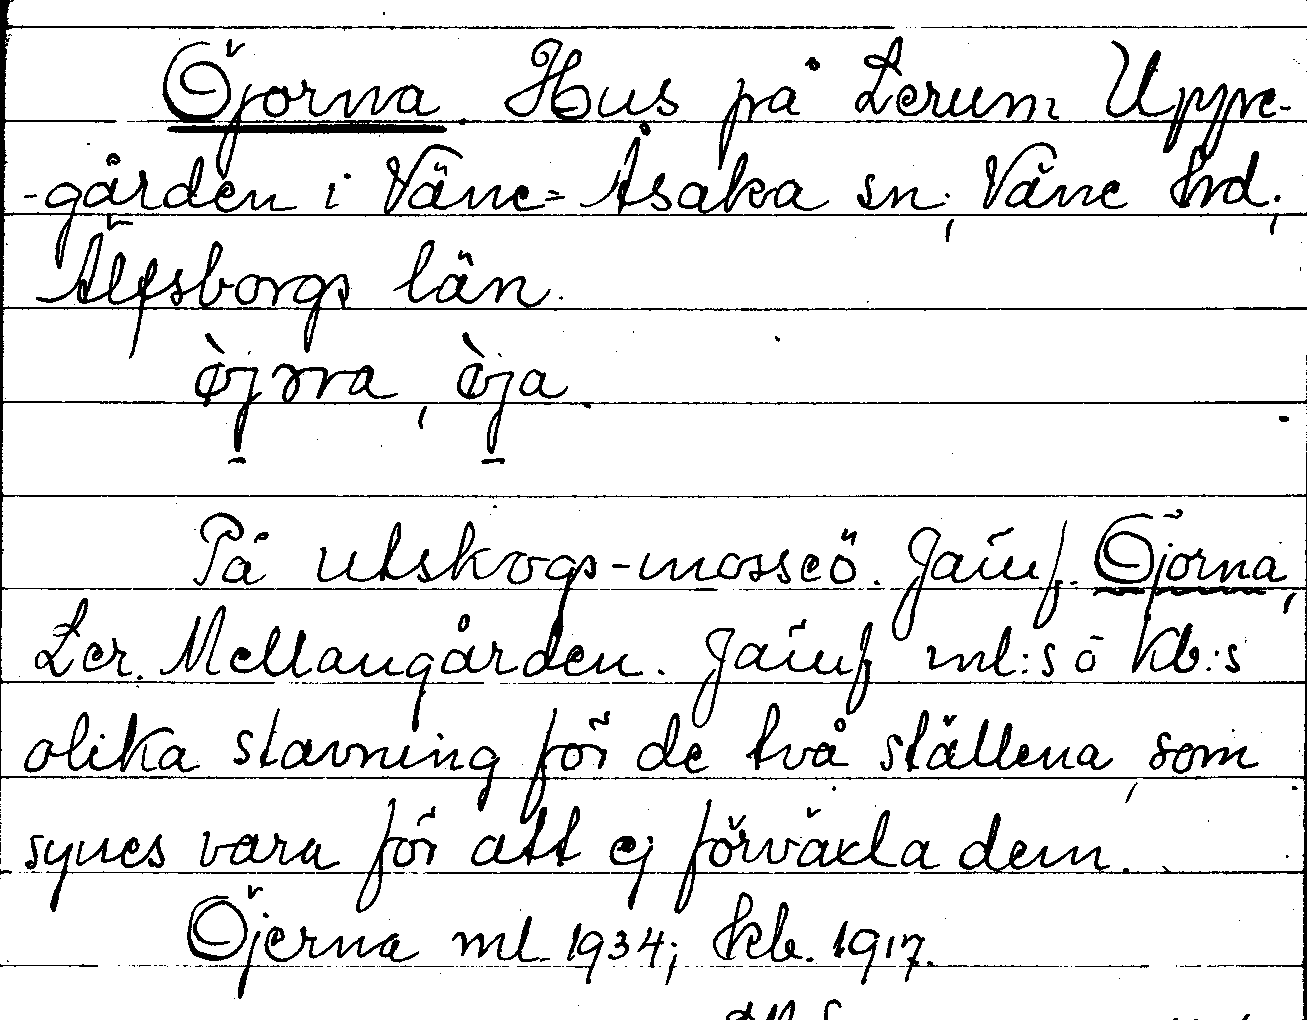 Öjorna. Hus på Lerum Uppe-
-gården i Väne-Åsaka sn, Väne hrd,
Älfsborgs län.
öja.
På utskogs-mosseö. Jämf. Öjorna,
Ler. Mellangården. Jämf ml:s o kb:s
olika stavning för de två ställena, som
synes vara för att ej förväxla dem.
Öjerna ml. 1934; kb. 1917.